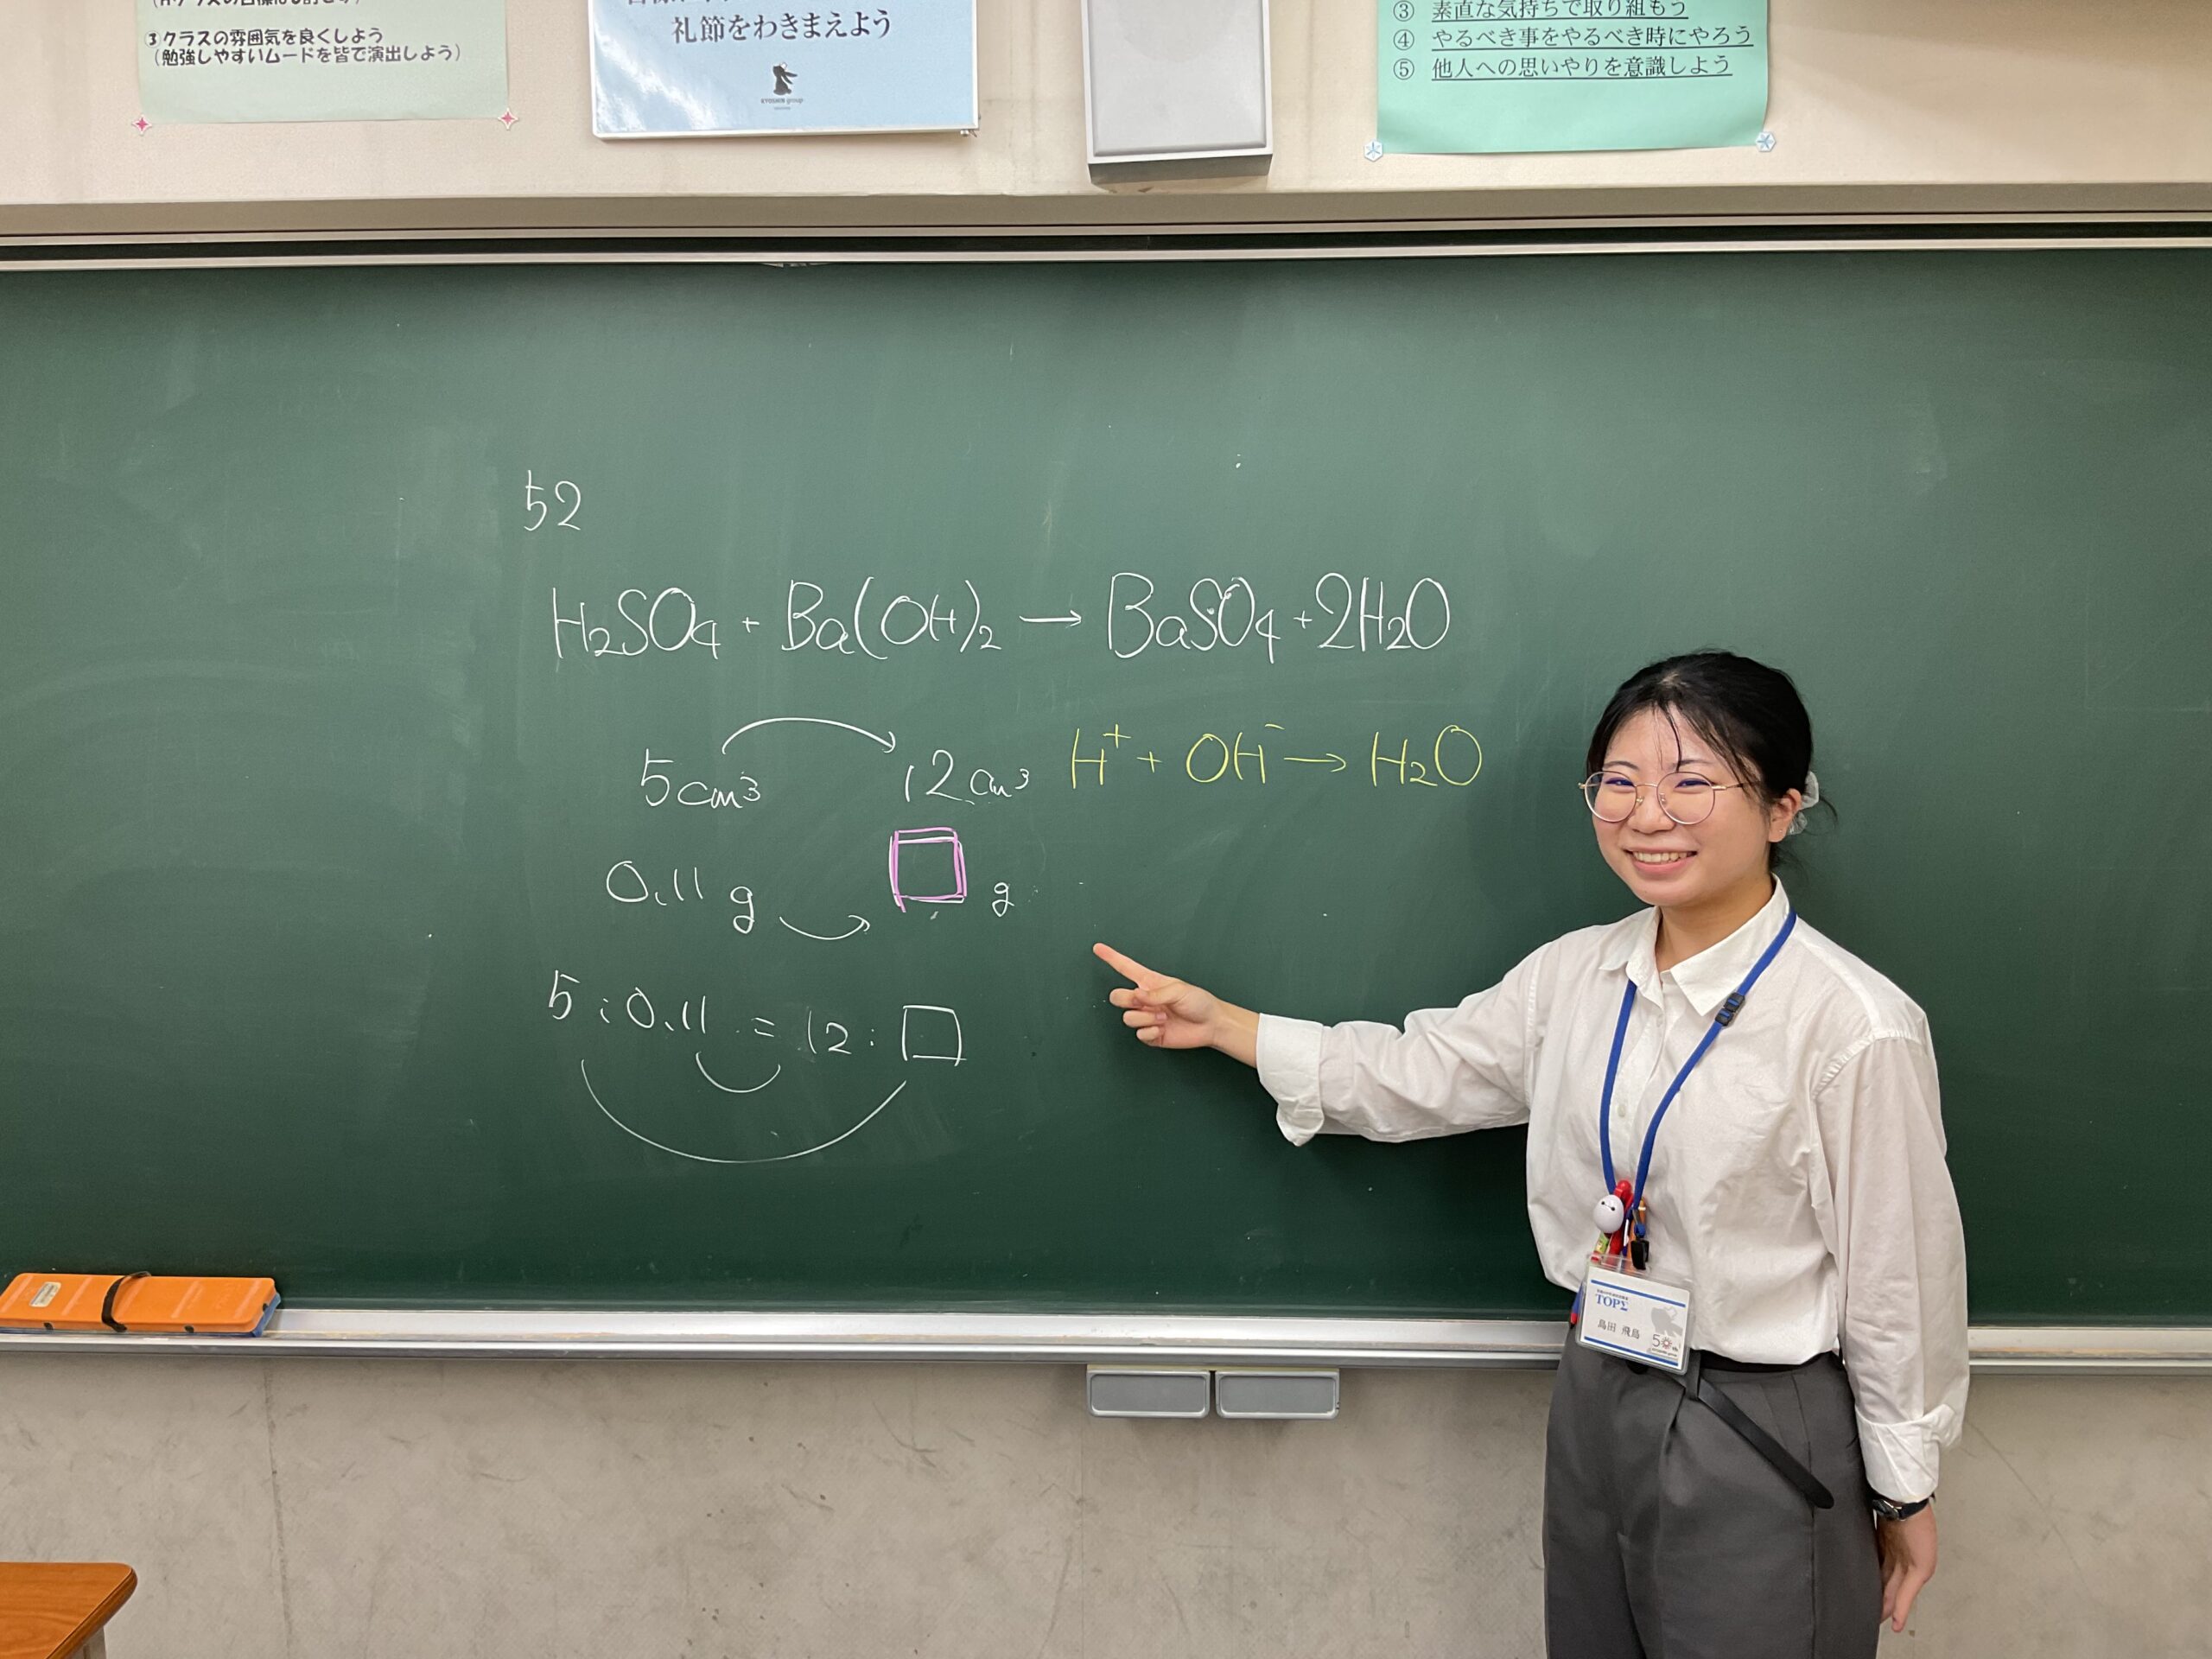 ③クラスの雰囲気を良くしよう
(勉強しやすいムードを皆で演出しよう)
礼節をわきまえよう
KYOSHIN group
③ 素直な気持ちで取り組もう
④ やるべき事をやるべき時にやろう
⑤ 他人への思いやりを意識しよう
52
H₂SO₄ + Ba(OH)₂ → BaSO₄ + 2H₂O
5cm³ 12cm³
H⁺ + OH⁻ → H₂O
0.11 g □ g
5 : 0.11 = 12 : □
TOPΣ
島田 飛鳥
50th